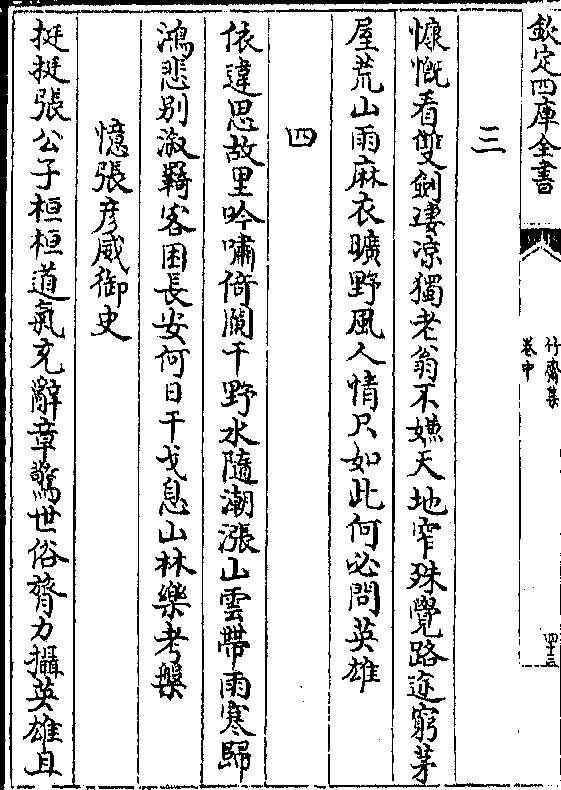 欽定四庫全書
竹齋集
卷中
四十三
三
慷慨看雙劍凄凉獨老翁不嫌天地窄殊覺路途窮茅
屋荒山雨麻衣曠野風人情只如此何必問英雄
四
依違思故里吟嘯倚闌干野水隨潮漲山雲帶雨寒歸
鴻悲别溆羇客困長安何日干戈息山林樂考槃
憶張彦威御史
挺挺張公子桓桓道氣充辭章驚世俗膂力攝英雄且